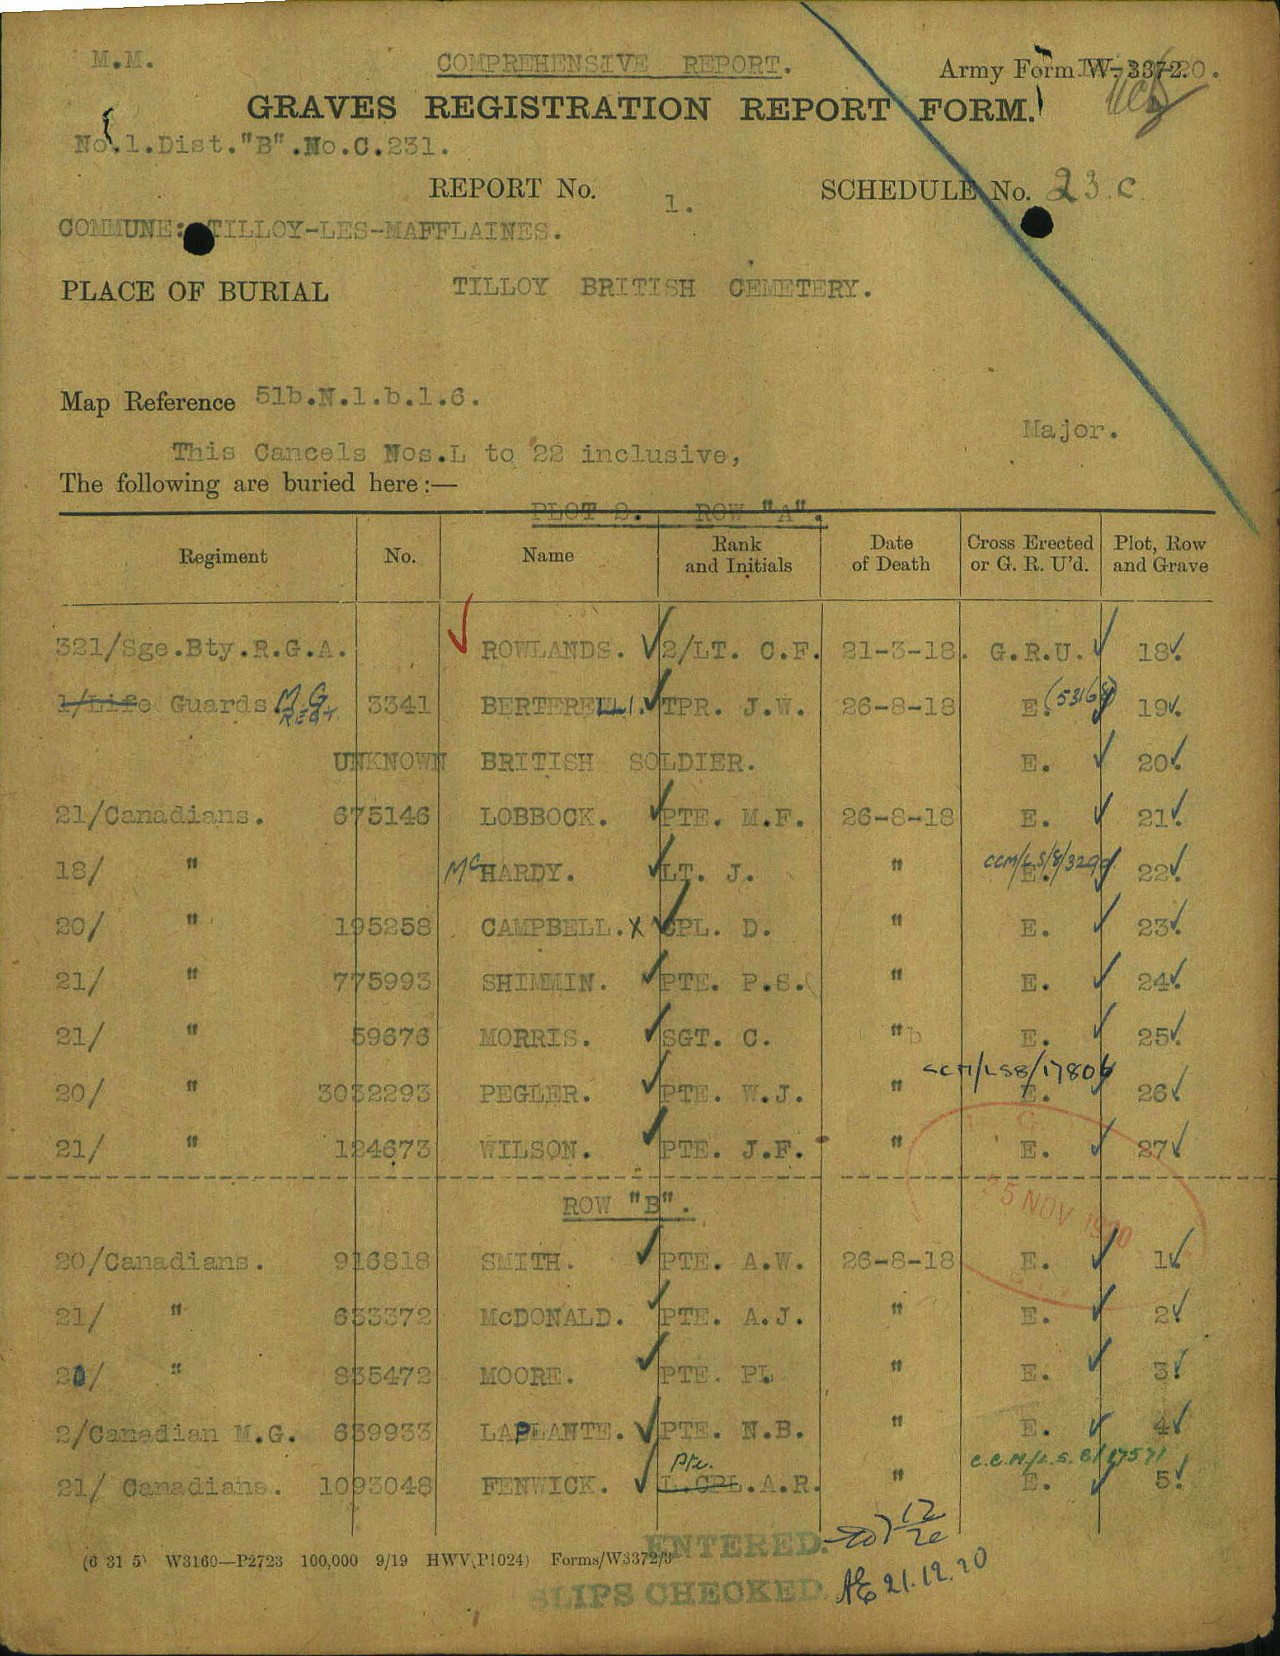 M.M.
COMPREHENSIVE REPORT.
Army Form W-3372.
GRAVES REGISTRATION REPORT FORM.
No.1.Dist."B".No.C.231.
REPORT No. 1.
SCHEDULE No. 23.C
COMMUNE: TILLOY-LES-MAFFLAINES.
PLACE OF BURIAL TILLOY BRITISH CEMETERY.
Map Reference 51b.N.1.b.1.6.
Major.
This Cancels Nos.L to 22 inclusive,
The following are buried here:—
PLOT 2. ROW "A".
Regiment No. Name Rank and Initials Date of Death Cross Erected or G. R. U'd. Plot, Row and Grave
321/Sge.Bty.R.G.A. ROWLANDS. 2/LT. C.F. 21-3-18. G.R.U. 18.
1/Life Guards. M.G. REGT. 3341 BERTERELLI. TPR. J.W. 26-8-18 E. 19.
UNKNOWN BRITISH SOLDIER. E. 20.
21/Canadians. 675146 LOBBOCK. PTE. M.F. 26-8-18 E. 21.
18/ " McHARDY. LT. J. " E. 22.
20/ " 195258 CAMPBELL.X CPL. D. " E. 23.
21/ " 775993 SHIMMIN. PTE. P.S. " E. 24.
21/ " 59676 MORRIS. SGT. C. " E. 25.
20/ " 3032293 PEGLER. PTE. W.J. " E. 26.
21/ " 124673 WILSON. PTE. J.F. " E. 27
ROW "B".
25 NOV 1920
20/Canadians. 916818 SMITH. PTE. A.W. 26-8-18 E. 1.
21/ " 633372 McDONALD. PTE. A.J. " E. 2
20/ " 835472 MOORE. PTE. P. " E. 3.
2/Canadian M.G. 639933 LAPLANTE. PTE. N.B. " E. 4
Pte. C.C.M/L.S.8/17571
21/ Canadians. 1093048 FENWICK. L.CPL.A.R. " E. 5.
ENTERED. 12/20
(6 31 5) W3160—P2723 100,000 9/19 HWV(P1024) Forms/W3372/3
SLIPS CHECKED. 21.12.20